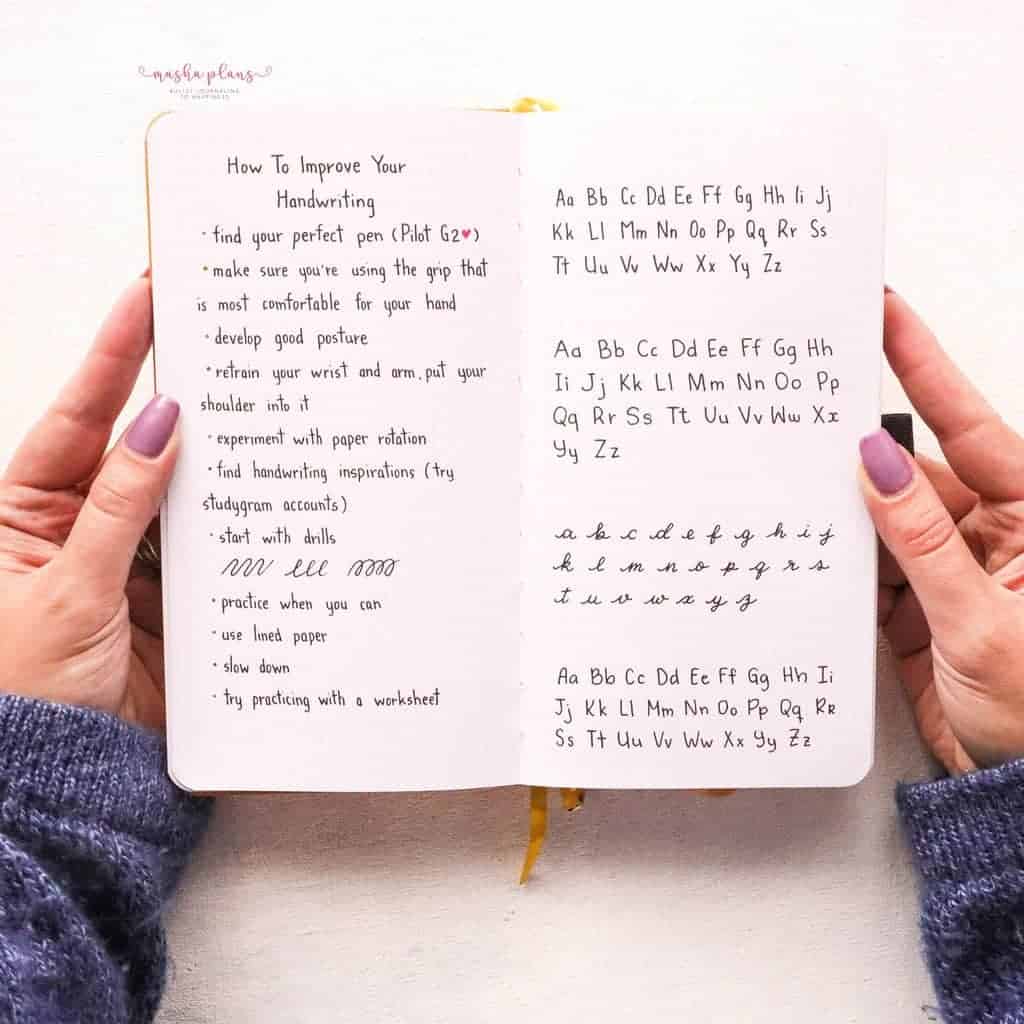 masha plans
BULLET JOURNALING
TO HAPPINESS
How To Improve Your
Handwriting
• find your perfect pen (Pilot G2♥)
• make sure you're using the grip that
is most comfortable for your hand
• develop good posture
• retrain your wrist and arm, put your
shoulder into it
• experiment with paper rotation
• find handwriting inspirations (try
studygram accounts)
• start with drills
• practice when you can
• use lined paper
• slow down
• try practicing with a worksheet
Aa Bb Cc Dd Ee Ff Gg Hh Ii Jj
Kk Ll Mm Nn Oo Pp Qq Rr Ss
Tt Uu Vv Ww Xx Yy Zz
Aa Bb Cc Dd Ee Ff Gg Hh
Ii Jj Kk Ll Mm Nn Oo Pp
Qq Rr Ss Tt Uu Vv Ww Xx
Yy Zz
a b c d e f g h i j
k l m n o p q r s
t u v w x y z
Aa Bb Cc Dd Ee Ff Gg Hh Ii
Jj Kk Ll Mm Nn Oo Pp Qq Rr
Ss Tt Uu Vv Ww Xx Yy Zz